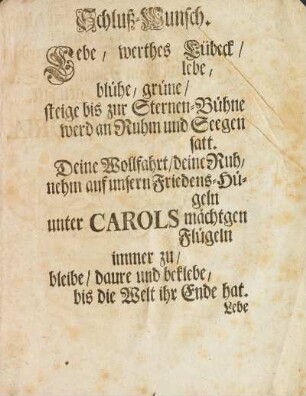 Schluß-Wunsch.
Lebe / werthes Lübeck /
lebe /
blühe / grüne /
steige bis zur Sternen-Bühne
werd an Ruhm und Seegen
satt.
Deine Wollfahrt / deine Ruh /
nehm auf unsern Friedens-Hü-
geln
unter CAROLS mächtgen
Flügeln
immer zu /
bleibe / daure und beklebe /
bis die Welt ihr Ende hat.
Lebe